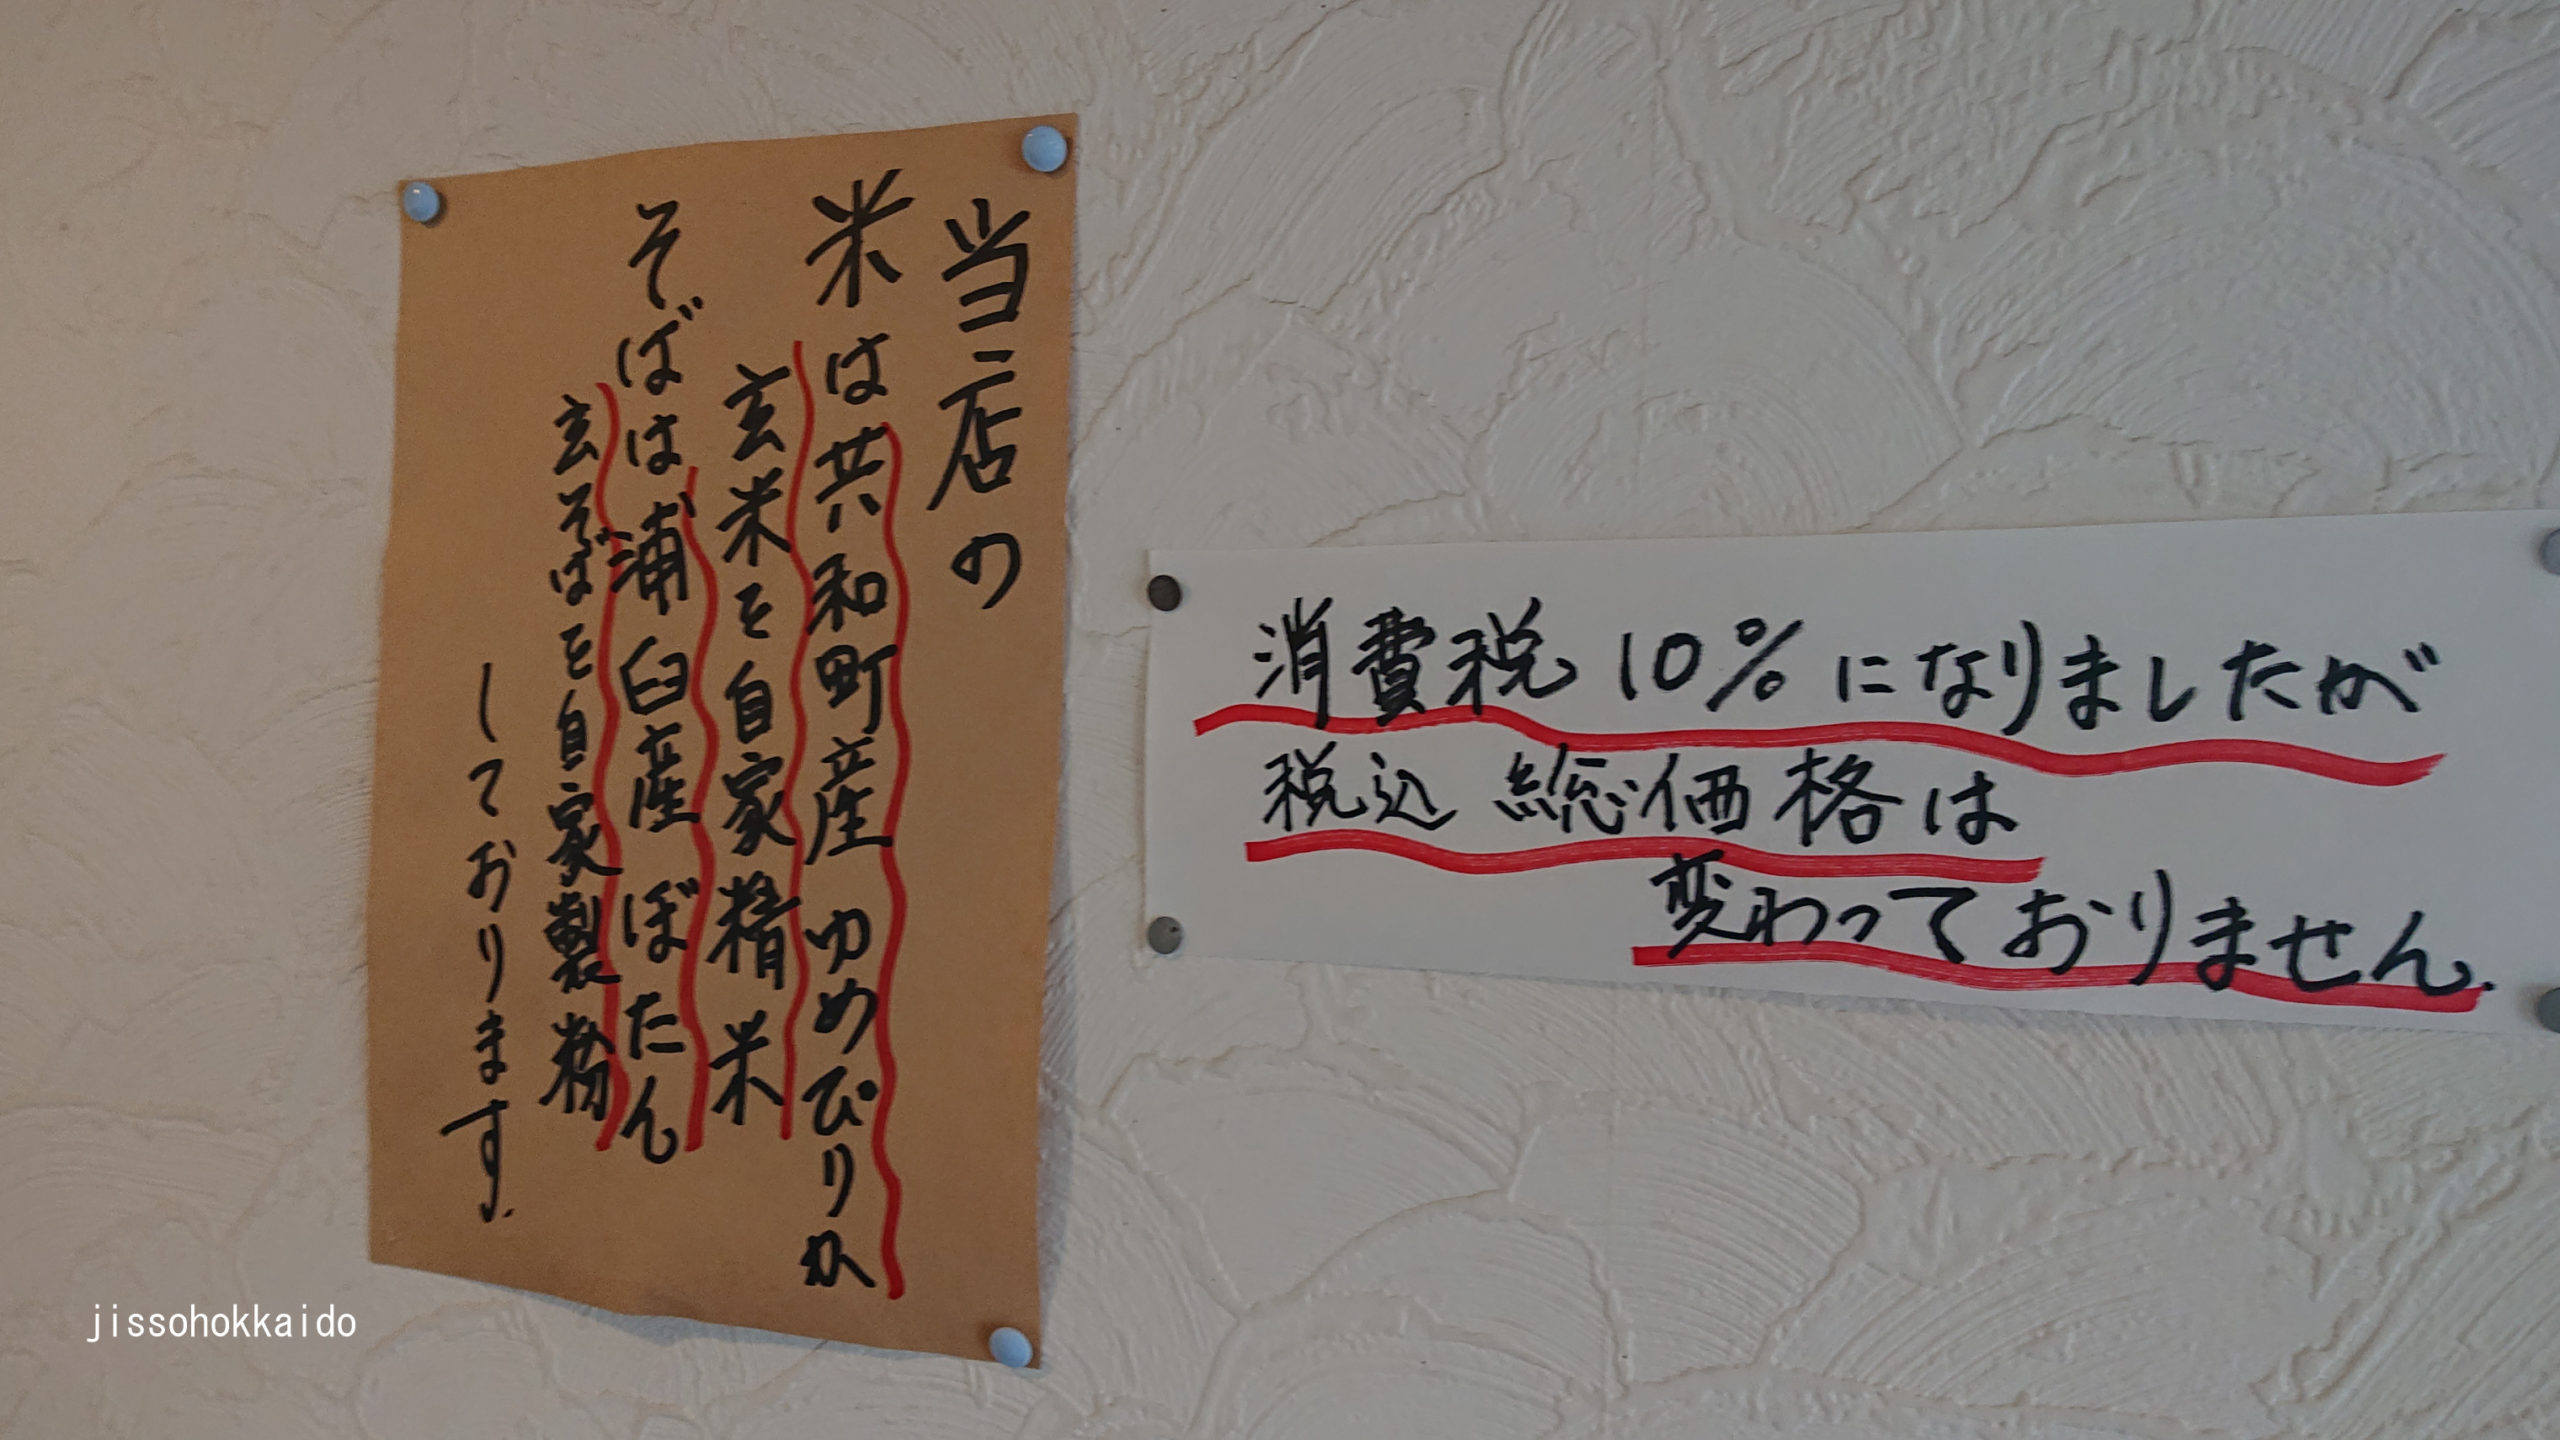 当店の
米は共和町産ゆめぴりか
玄米を自家精米
そばは浦臼産ぼたん
玄そばを自家製粉
しております.
消費税10%になりましたが
税込総価格は
変わっておりません.
jissohokkaido